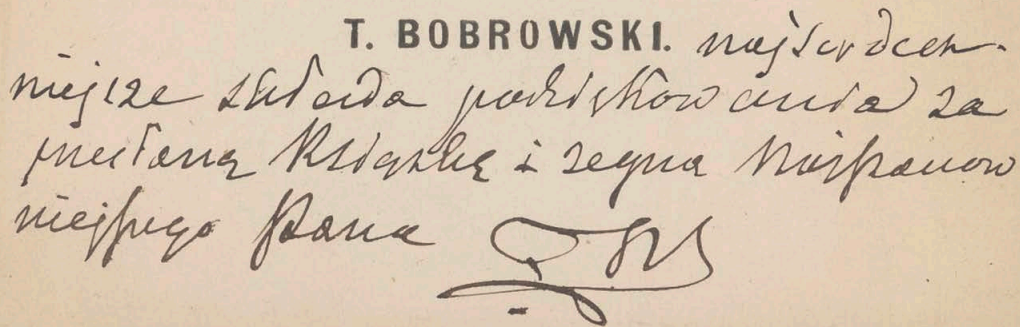 T. BOBROWSKI. najserdecz-
niejsze składa podziękowania za
przesłaną Książkę i żegna Najszanow
niejszego Pana TB